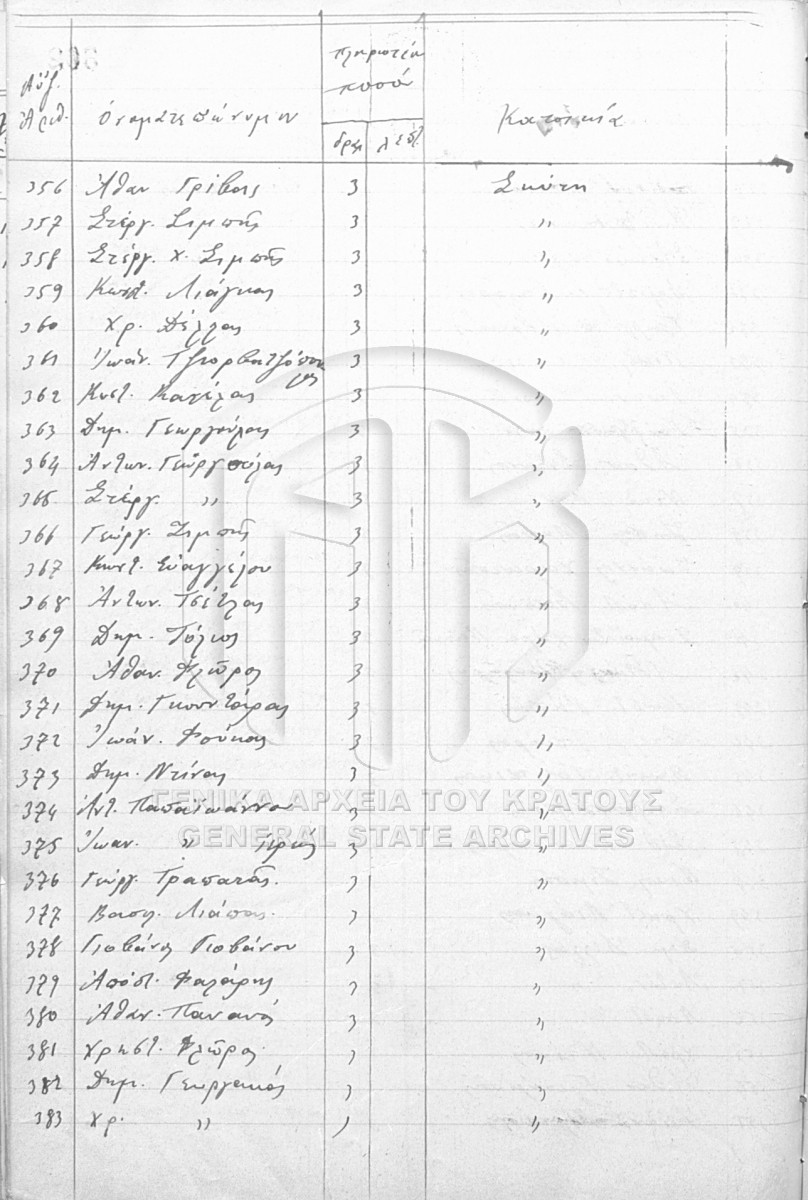 Αὔξ. Ἀριθ. Ὀνοματεπώνυμον πληρωτέον ποσόν Κατοικία
δρχ λεπτ
356 Ἀθαν Γρίβας 3 Σκύτη
357 Στέργ. Σιμπῆς 3 "
358 Στέργ. Χ. Σιμπῆς 3 "
359 Κωστ. Λιάγκας 3 "
360 Χρ. Δέλλας 3 "
361 Ἰωάν. 3 "
362 Κωστ. Καγέλας 3 "
363 Δημ. Γεωργούλας 3 "
364 Ἀντων. Γεωργούλας 3 "
365 Στέργ. " 3 "
366 Γεώργ. Σιμπῆς 3 "
367 Κωστ. Εὐαγγέλου 3 "
368 Ἀντων. Τσέτλας 3 "
369 Δημ. Τόλιος 3 "
370 Ἀθαν. Φλῶρος 3 "
371 Δημ. Γκουντάρας 3 "
372 Ἰωάν. Φούκας 3 "
373 Δημ. Ντίνας 3 "
374 Ἀντ. Παπαϊωάννου 3 "
375 Ἰωαν. " ἱερεύς 3 "
376 Γεώργ. Τραπατσᾶς. 3 "
377 Βασιλ. Λιάπας. 3 "
378 Γιοβάνης Γιοβάνου 3 "
379 Ἀπόστ. Φαλάρης 3 "
380 Ἀθαν. Πανανός 3 "
381 Χρηστ. Φλῶρος 3 "
382 Δημ. Γεωργακός 3 "
383 Χρ. " 3 "
ΓΕΝΙΚΑ ΑΡΧΕΙΑ ΤΟΥ ΚΡΑΤΟΥΣ
GENERAL STATE ARCHIVES